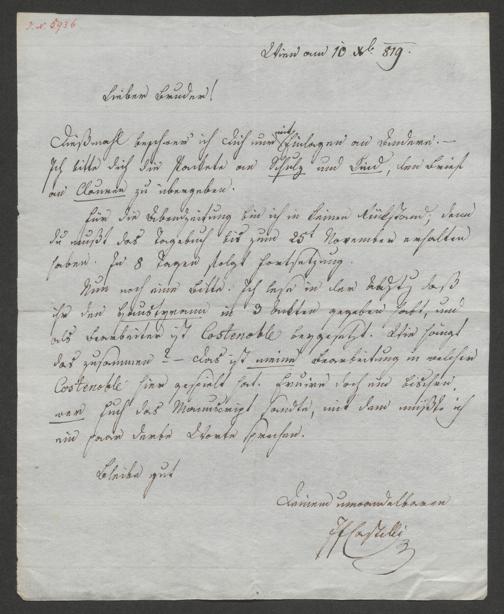 I. N. 5936
Wien am 10 Xb. 819.
Lieber Bruder!
Dießmahl beschwer ich dich nur mit Einlagen an Andere. –
Ich bitte dich die Packete an Schulz und Kind, den Brief
an Clauren zu übergeben.
Für die Abendzeitung bin ich in keinem Rückstand, denn
du mußt das Tagebuch bis zum 25t November erhalten
haben. In 8 Tagen folgt Fortsetzung.
Nun noch eine Bitte. Ich lese in der daß
ihr den Haustyrann in 3 Akten gegeben habt, und
als Bearbeiter ist Costenoble beygesetzt. Wie hängt
das zusammen? – das ist meine Bearbeitung in welcher
Costenoble hier gespielt hat. Eruire doch ein bischen,
wer Euch das Manuscript sandte, mit dem müßte ich
ein paar derbe Worte sprechen.
Bleibe gut
Deinem unwandelbaren
JFCastelli